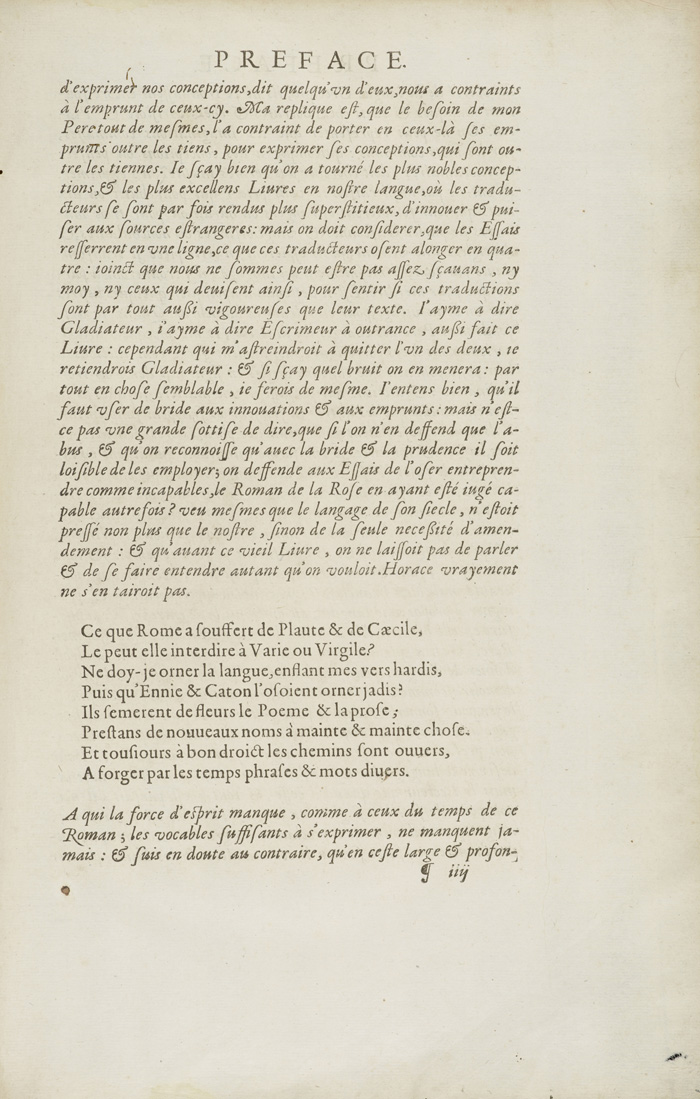 PREFACE.
d'exprimer nos conceptions,dit quelqu'vn d'eux,nous a contraints
à l'emprunt de ceux-cy. Ma replique eſt, que le beſoin de mon
Pere tout de meſmes, l'a contraint de porter en ceux-là ſes em-
prunts outre les tiens, pour exprimer ſes conceptions,qui ſont ou-
tre les tiennes. Ie ſçay bien qu'on a tourné les plus nobles concep-
tions,& les plus excellens Liures en noſtre langue,où les tradu-
cteurs ſe ſont par fois rendus plus ſuperſtitieux, d'innouer & pui-
ſer aux ſources eſtrangeres: mais on doit conſiderer,que les Eſſais
reſſerrent en vne ligne,ce que ces traducteurs oſent alonger en qua-
tre : ioinct que nous ne ſommes peut eſtre pas aſſez ſçauans , ny
moy , ny ceux qui deuiſent ainſi , pour ſentir ſi ces traductions
ſont par tout auſſi vigoureuſes que leur texte. I'ayme à dire
Gladiateur , i'ayme à dire Eſcrimeur à outrance , auſſi fait ce
Liure : cependant qui m'aſtreindroit à quitter l'vn des deux , ie
retiendrois Gladiateur : & ſi ſçay quel bruit on en menera : par
tout en choſe ſemblable , ie ferois de meſme. I'entens bien , qu'il
faut vſer de bride aux innouations & aux emprunts : mais n'eſt-
ce pas vne grande ſottiſe de dire,que ſi l'on n'en deffend que l'a-
bus , & qu'on reconnoiſſe qu'auec la bride & la prudence il ſoit
loiſible de les employer; on deffende aux Eſſais de l'oſer entrepren-
dre comme incapables,le Roman de la Roſe en ayant eſté iugé ca-
pable autrefois? veu meſmes que le langage de ſon ſiecle , n'eſtoit
preſſé non plus que le noſtre , ſinon de la ſeule neceſſité d'amen-
dement : & qu'auant ce vieil Liure , on ne laiſſoit pas de parler
& de ſe faire entendre autant qu'on vouloit.Horace vrayement
ne s'en tairoit pas.
Ce que Rome a ſouffert de Plaute & de Cæcile,
Le peut elle interdire à Varie ou Virgile?
Ne doy-je orner la langue,enflant mes vers hardis,
Puis qu'Ennie & Caton l'oſoient orner jadis?
Ils ſemerent de fleurs le Poeme & la proſe ;
Preſtans de nouueaux noms à mainte & mainte choſe.
Et touſiours à bon droict les chemins ſont ouuers,
A forger par les temps phraſes & mots diuers.
A qui la force d'eſprit manque , comme à ceux du temps de ce
Roman ; les vocables ſuffiſans à s'exprimer , ne manquent ja-
mais : & ſuis en doute au contraire, qu'en ceſte large & profon-
¶ iiij